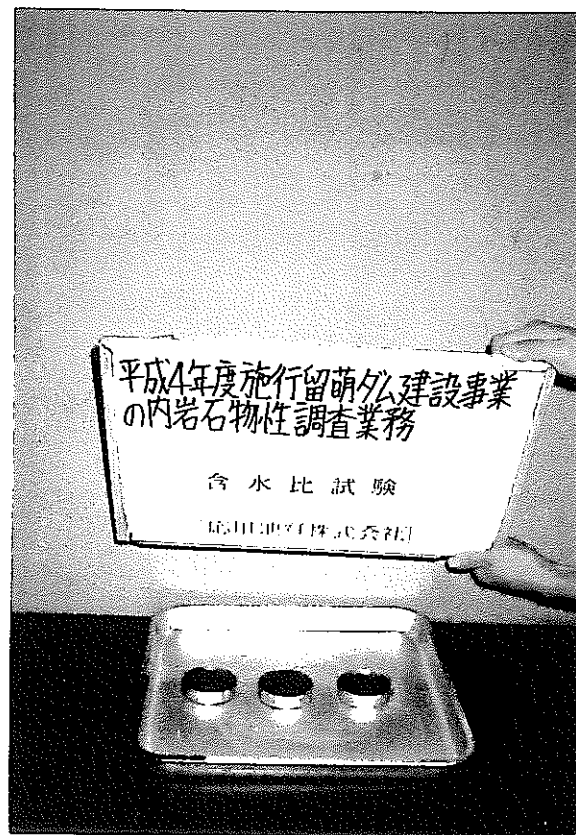 平成4年度施行留萌ダム建設事業
の内岩石物性調査業務
含水比試験
株式会社